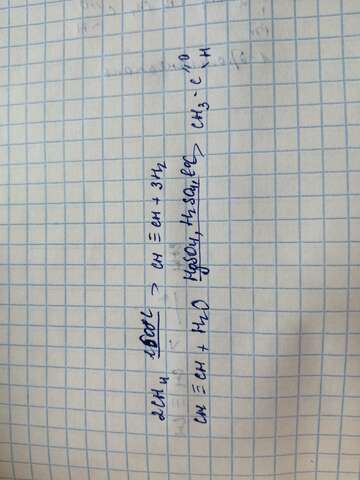 2CH₄ 1500°C > CH ≡ CH + 3H₂
CH ≡ CH + H₂O HgSO₄, H₂SO₄, t°C > CH₃ - C O H